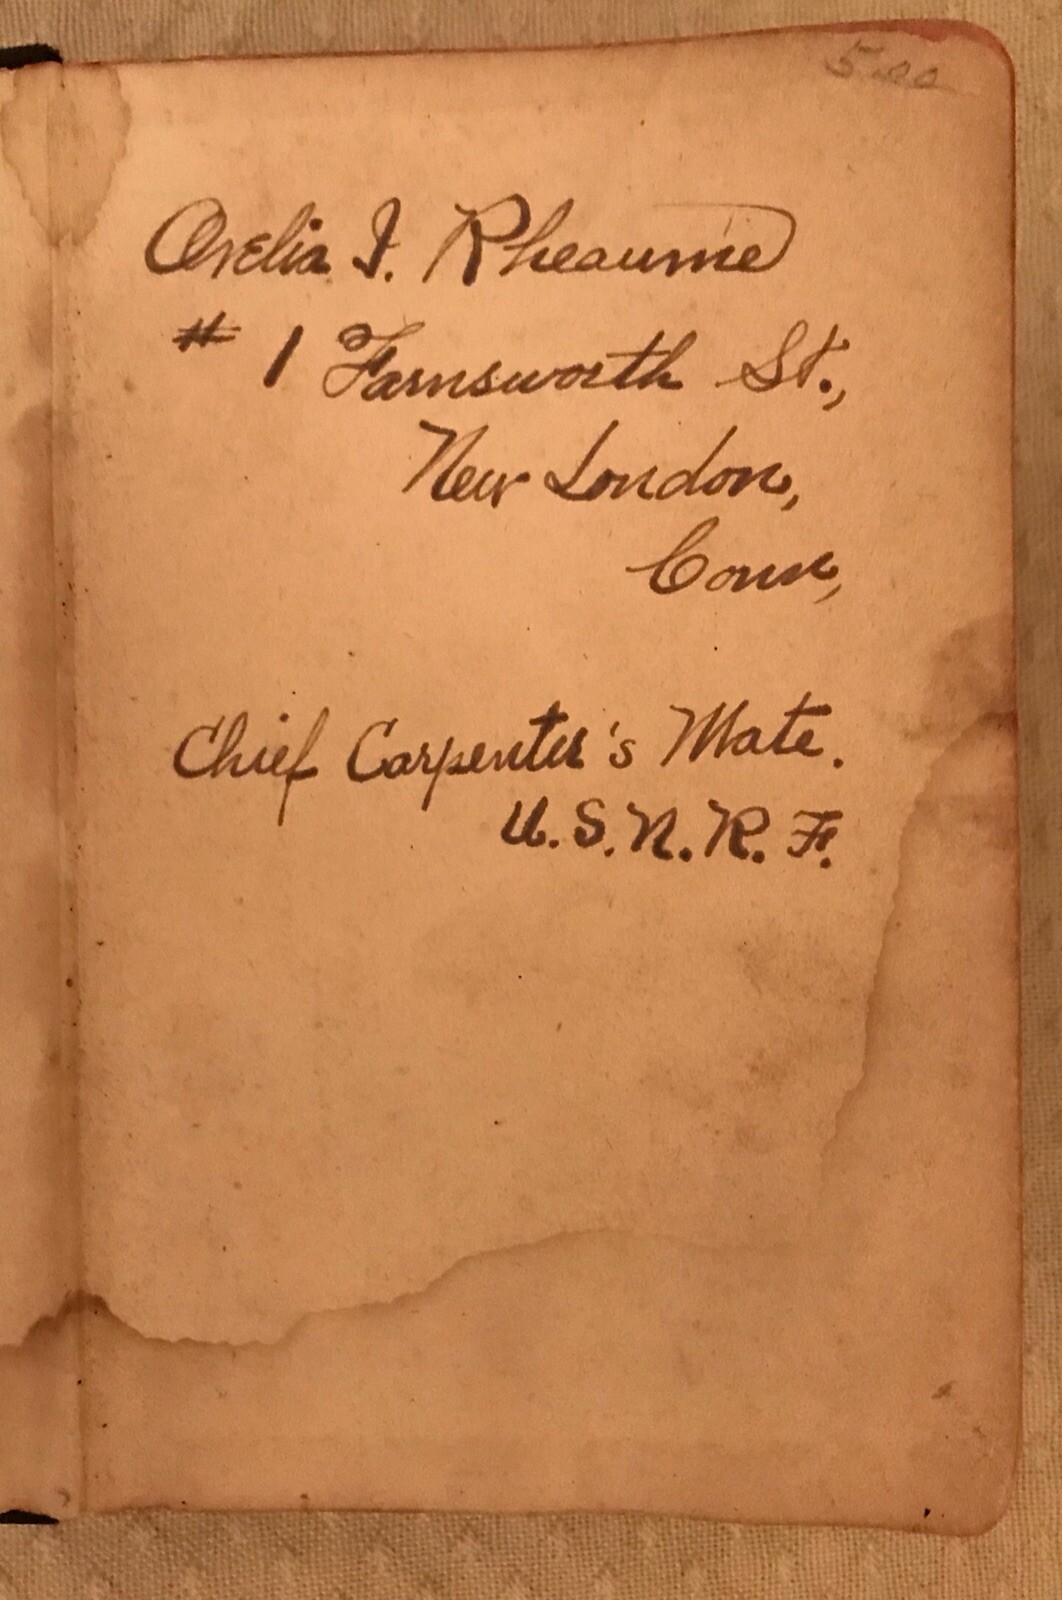 5.00
Orelia J. Rheaume
# 1 Farnsworth St.,
New London,
Conn,
Chief Carpenter's Mate.
U.S.N.R.F.